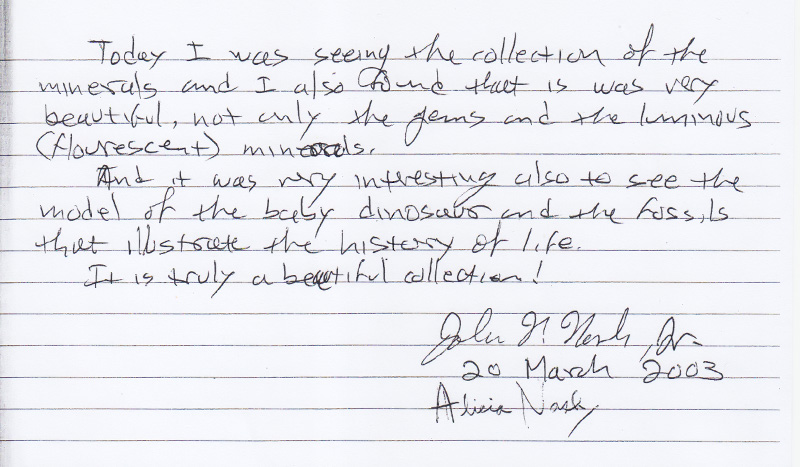 Today I was seeing the collection of the
minerals and I also found that is was very
beautiful, not only the gems and the luminous
(flourescent) minerals.
And it was very interesting also to see the
model of the baby dinosaur and the fossils
that illustrate the history of life.
It is truly a beautiful collection!
John F. Nash, Jr.
20 March 2003
Alicia Nash